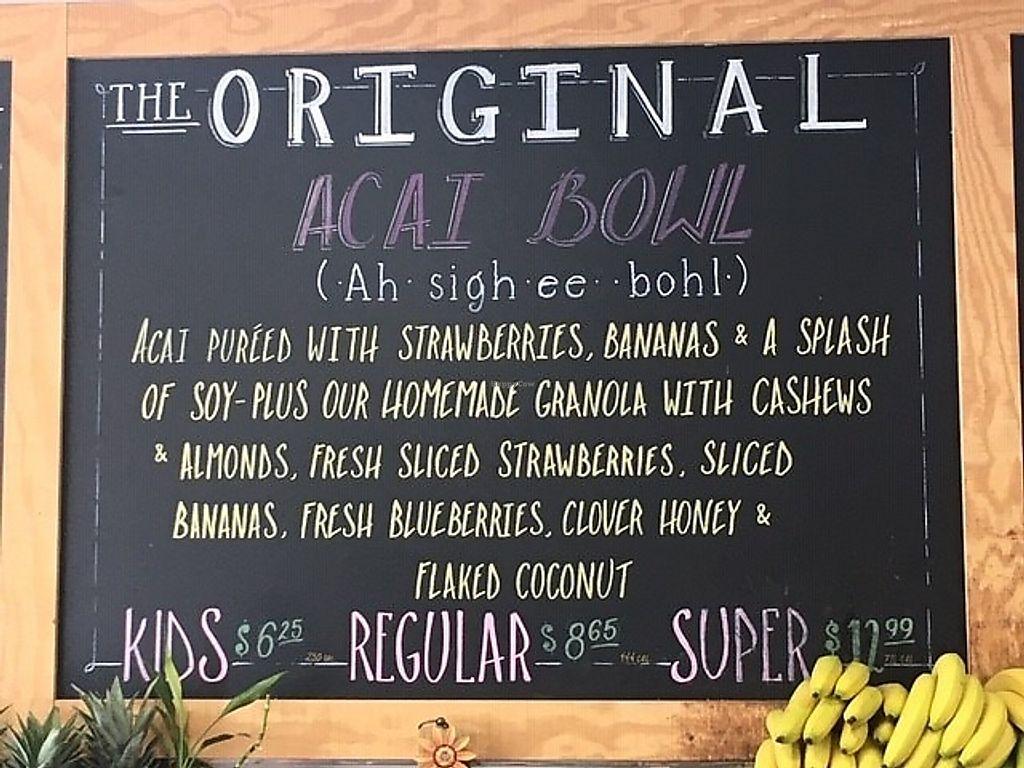 THE ORIGINAL
ACAI BOWL
(·Ah·sigh·ee··bohl·)
ACAI PURÉED WITH STRAWBERRIES, BANANAS & A SPLASH
OF SOY-PLUS OUR HOMEMADE GRANOLA WITH CASHEWS
& ALMONDS, FRESH SLICED STRAWBERRIES, SLICED
BANANAS, FRESH BLUEBERRIES, CLOVER HONEY &
FLAKED COCONUT
KIDS $6.25 REGULAR $8.65 SUPER $12.99